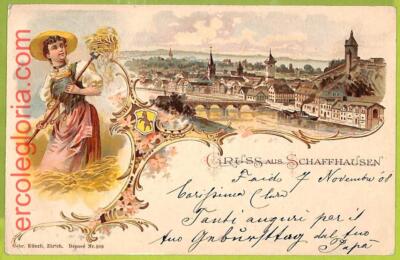 ercolegloria.com
GRUSS AUS SCHAFFHAUSEN
Faido 7 Novembre 08
Carissima Clara
Tanti auguri per il
tuo Geburtstag dal tuo
Papà
Gebr. Künzli, Zürich. Déposé Nr.